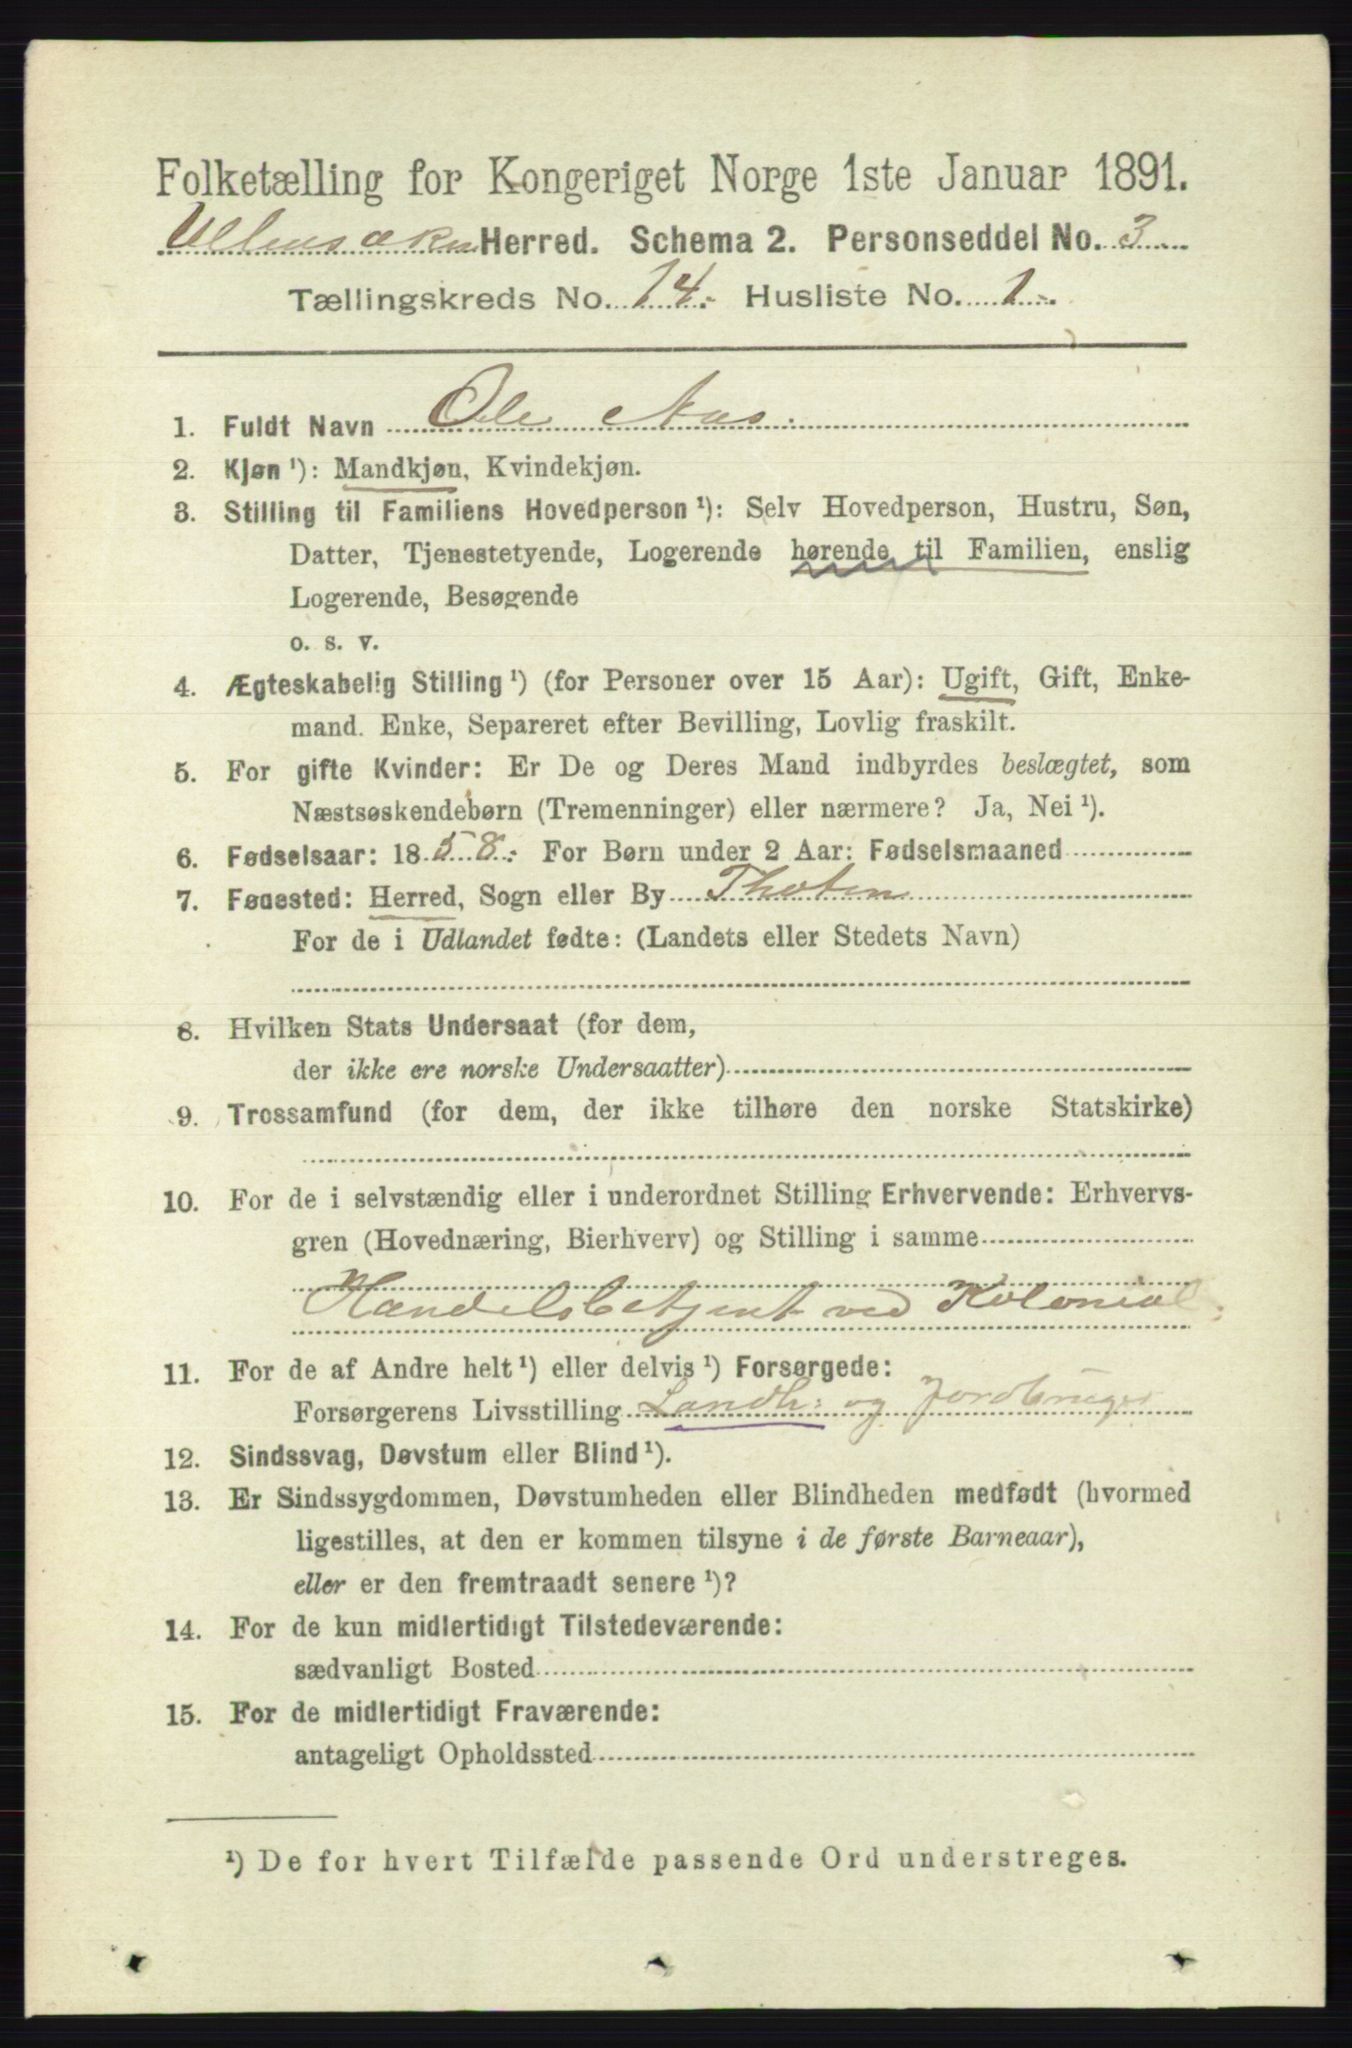 Folketælling for Kongeriget Norge 1ste Januar 1891.
Ullensaker Herred. Schema 2. Personseddel No. 3
Tællingskreds No. 14. Husliste No. 1
1. Fuldt Navn Ole Aas
2. Kjøn ¹): Mandkjøn, Kvindekjøn.
3. Stilling til Familiens Hovedperson ¹): Selv Hovedperson, Hustru, Søn,
Datter, Tjenestetyende, Logerende hørende til Familien, enslig
Logerende, Besøgende
o. s. v.
4. Ægteskabelig Stilling ¹) (for Personer over 15 Aar): Ugift, Gift, Enke-
mand. Enke, Separeret efter Bevilling, Lovlig fraskilt.
5. For gifte Kvinder: Er De og Deres Mand indbyrdes beslægtet, som
Næstsøskendebørn (Tremenninger) eller nærmere? Ja, Nei ¹).
6. Fødselsaar: 1858. For Børn under 2 Aar: Fødselsmaaned
7. Fødested: Herred, Sogn eller By Thoten
For de i Udlandet fødte: (Landets eller Stedets Navn)
8. Hvilken Stats Undersaat (for dem,
der ikke ere norske Undersaatter)
9. Trossamfund (for dem, der ikke tilhøre den norske Statskirke)
10. For de i selvstændig eller i underordnet Stilling Erhvervende: Erhvervs-
gren (Hovednæring, Bierhverv) og Stilling i samme
Handelsbetjent ved Kolonial
11. For de af Andre helt ¹) eller delvis ¹) Forsørgede:
Forsørgerens Livsstilling Landh: og Jordbruger
12. Sindssvag, Døvstum eller Blind ¹).
13. Er Sindssygdommen, Døvstumheden eller Blindheden medfødt (hvormed
ligestilles, at den er kommen tilsyne i de første Barneaar),
eller er den fremtraadt senere ¹)?
14. For de kun midlertidigt Tilstedeværende:
sædvanligt Bosted
15. For de midlertidigt Fraværende:
antageligt Opholdssted
¹) De for hvert Tilfælde passende Ord understreges.